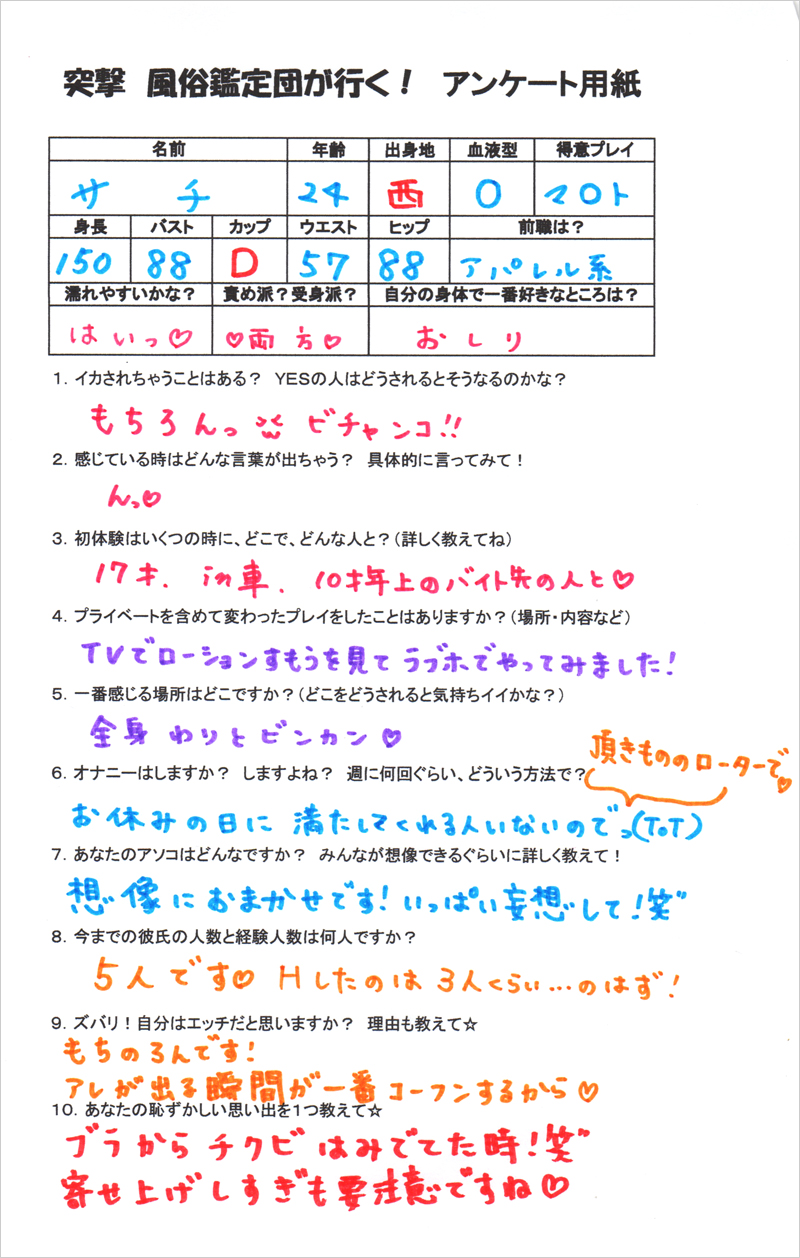 突撃 風俗鑑定団が行く！ アンケート用紙
名前 年齢 出身地 血液型 得意プレイ
サチ 24 西 O マロト
身長 バスト カップ ウエスト ヒップ 前職は？
150 88 D 57 88 アパレル系
濡れやすいかな？ 責め派？受身派？ 自分の身体で一番好きなところは？
はいっ♡ ♡両方♡ おしり
1. イカされちゃうことはある？ YESの人はどうされるとそうなるのかな？
もちろんっ ビチャンコ!!
2. 感じている時はどんな言葉が出ちゃう？ 具体的に言ってみて！
んっ♡
3. 初体験はいくつの時に、どこで、どんな人と？（詳しく教えてね）
4. プライベートを含めて変わったプレイをしたことはありますか？（場所・内容など）
TVでローションすもうを見てラブホでやってみました!
5. 一番感じる場所はどこですか？（どこをどうされると気持ちイイかな？）
全身 わりとビンカン♡
6. オナニーはしますか？ しますよね？ 週に何回ぐらい、どういう方法で？
頂きもののローターで♡
お休みの日に 満たしてくれる人いないのでっ(ToT)
7. あなたのアソコはどんなですか？ みんなが想像できるぐらいに詳しく教えて！
想像におまかせです! いっぱい妄想して!笑
8. 今までの彼氏の人数と経験人数は何人ですか？
5人です♡ Hしたのは 3人くらい…のはず!
9. ズバリ！自分はエッチだと思いますか？ 理由も教えて☆
もちのろんです!
アレが出る瞬間が一番コーフンするから♡
10. あなたの恥ずかしい思い出を1つ教えて☆
ブラからチクビはみでてた時!笑
寄せ上げしすぎも要注意ですね♡